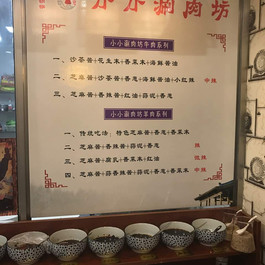 小小涮肉坊
小小涮肉坊牛肉系列
一、沙茶酱+花生末+香菜末+海鲜酱油
二、芝麻酱+沙茶酱+香葱+海鲜酱油+小红辣 中辣
三、芝麻酱+香辣酱+红油+蒜泥+香葱
小小涮肉坊羊肉系列
一、传统吃法，特色芝麻酱+香葱+香菜末
二、芝麻酱+香辣酱+蒜泥+香葱 微辣
三、芝麻酱+腐乳+香菜末+红油
四、芝麻酱+蒜香辣酱+蒜泥+香菜末 中辣